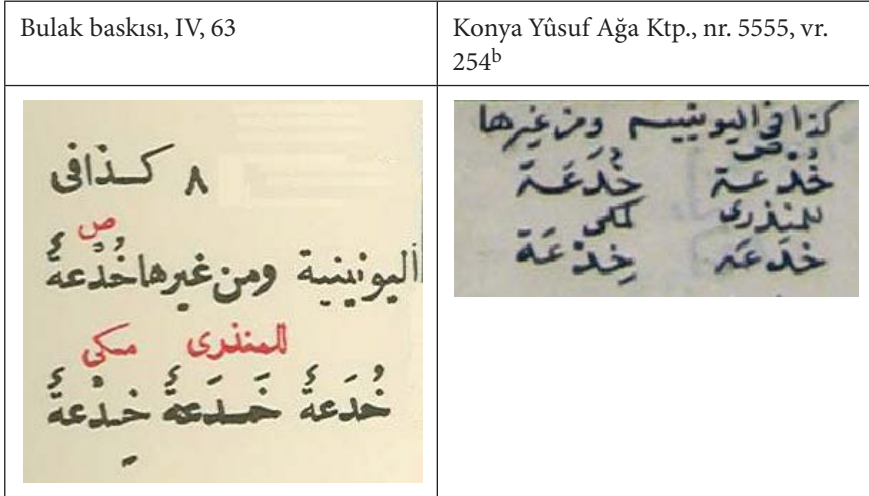 Bulak baskısı, IV, 63
Konya Yûsuf Ağa Ktp., nr. 5555, vr. 254b
٨ كذافى
ص
اليونينية ومن غيرها خُدْعةٌ
للمنذرى مكى
خُدَعةٌ خَدَعةٌ خِدْعةٌ
كذا في اليونينيه ومن غيرها
ص
خُدعة خُدَعَة
للمنذرى مكى
خَدَعَه خِدْعَة